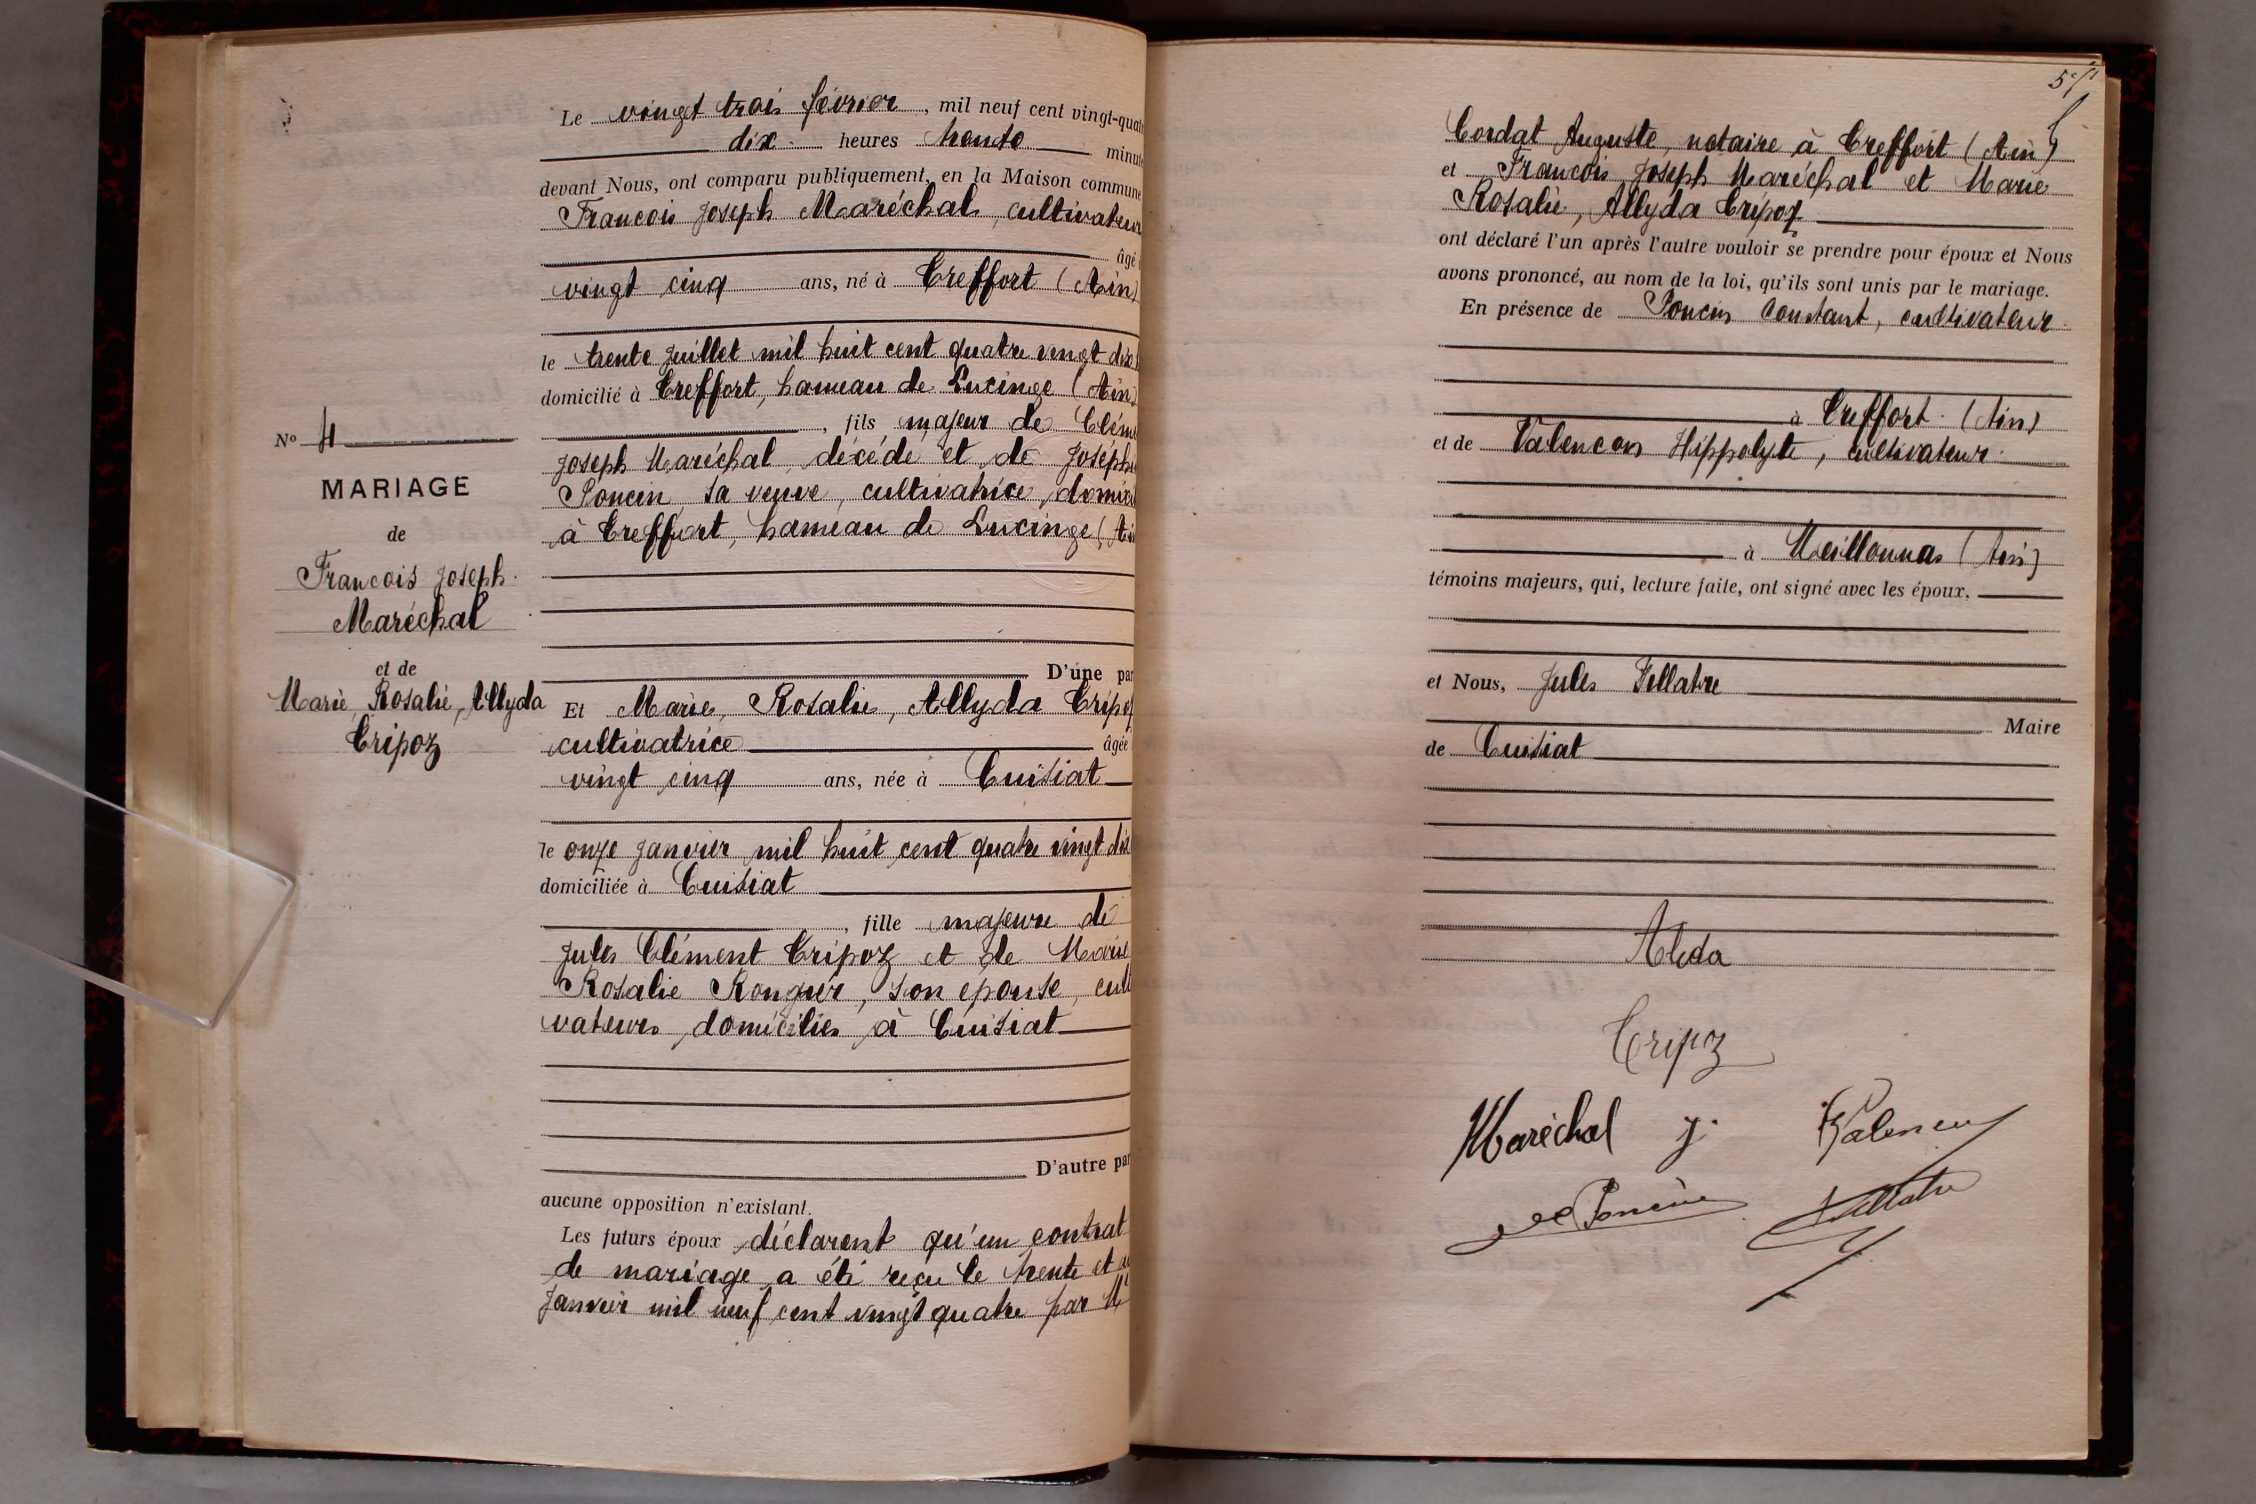 Le vingt trois février, mil neuf cent vingt-quat
dix heures trente minute
devant Nous, ont comparu publiquement, en la Maison commune
Francois Joseph Maréchal, cultivateur
âgé
vingt cinq ans, né à Treffort (Ain)
le trente Juillet mil huit cent quatre vingt dix
domicilié à Treffort, hameau de Lucinge (Ain)
, fils majeur de Clém
Joseph Maréchal, décédé et de Joseph
Poncin, sa veuve, cultivatrice, domici
à Treffort, hameau de Lucinge (Ai
D'une par
Et Marie, Rosalie, Allyda Tripoz
cultivatrice âgée
vingt cinq ans, née à Cuisiat
le onze Janvier mil huit cent quatre vingt dix
domiciliée à Cuisiat
, fille majeure de
Jules Clément Tripoz et de Marie
Rosalie Ronguer, son épouse, culti
vateurs, domiciliés à Cuisiat
D'autre par
aucune opposition n'existant.
Les futurs époux déclarent qu'un contrat
de mariage a été reçu le trente et
Janvier mil neuf cent vingt quatre par Me
No 4
MARIAGE
de
Francois Joseph
Maréchal
et de
Marie, Rosalie, Allyda
Tripoz
5
Cordat Auguste, notaire à Treffort (Ain)
et Francois Joseph Maréchal et Marie
Rosalie, Allyda Tripoz
ont déclaré l'un après l'autre vouloir se prendre pour époux et Nous
avons prononcé, au nom de la loi, qu'ils sont unis par le mariage.
En présence de Poncin Constant, cultivateur
à Treffort (Ain)
et de Valencon Hippolyte, cultivateur
à Meillonnas (Ain)
témoins majeurs, qui, lecture faite, ont signé avec les époux,
et Nous, Jules Fillatre
Maire
de Cuisiat
Aleda
Tripoz
Maréchal J.
Poncin
Fillatre